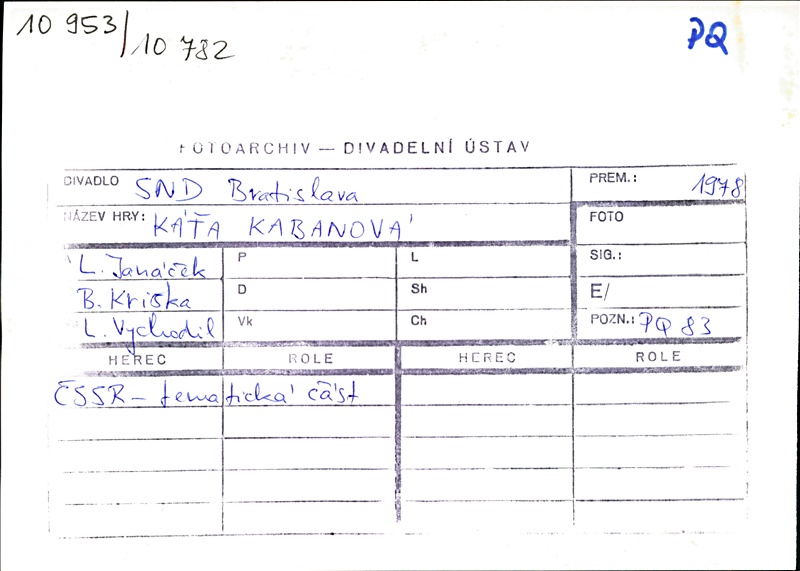 10 953/10 782
PQ
FOTOARCHIV — DIVADELNÍ ÚSTAV
DIVADLO SND Bratislava PREM.: 1978
NÁZEV HRY: KÁŤA KABANOVÁ FOTO
L. Janáček P L SIG.:
B. Kriška D Sh E/
L. Vychodil Vk Ch POZN.: PQ 83
HEREC ROLE HEREC ROLE
ČSSR – tematická část